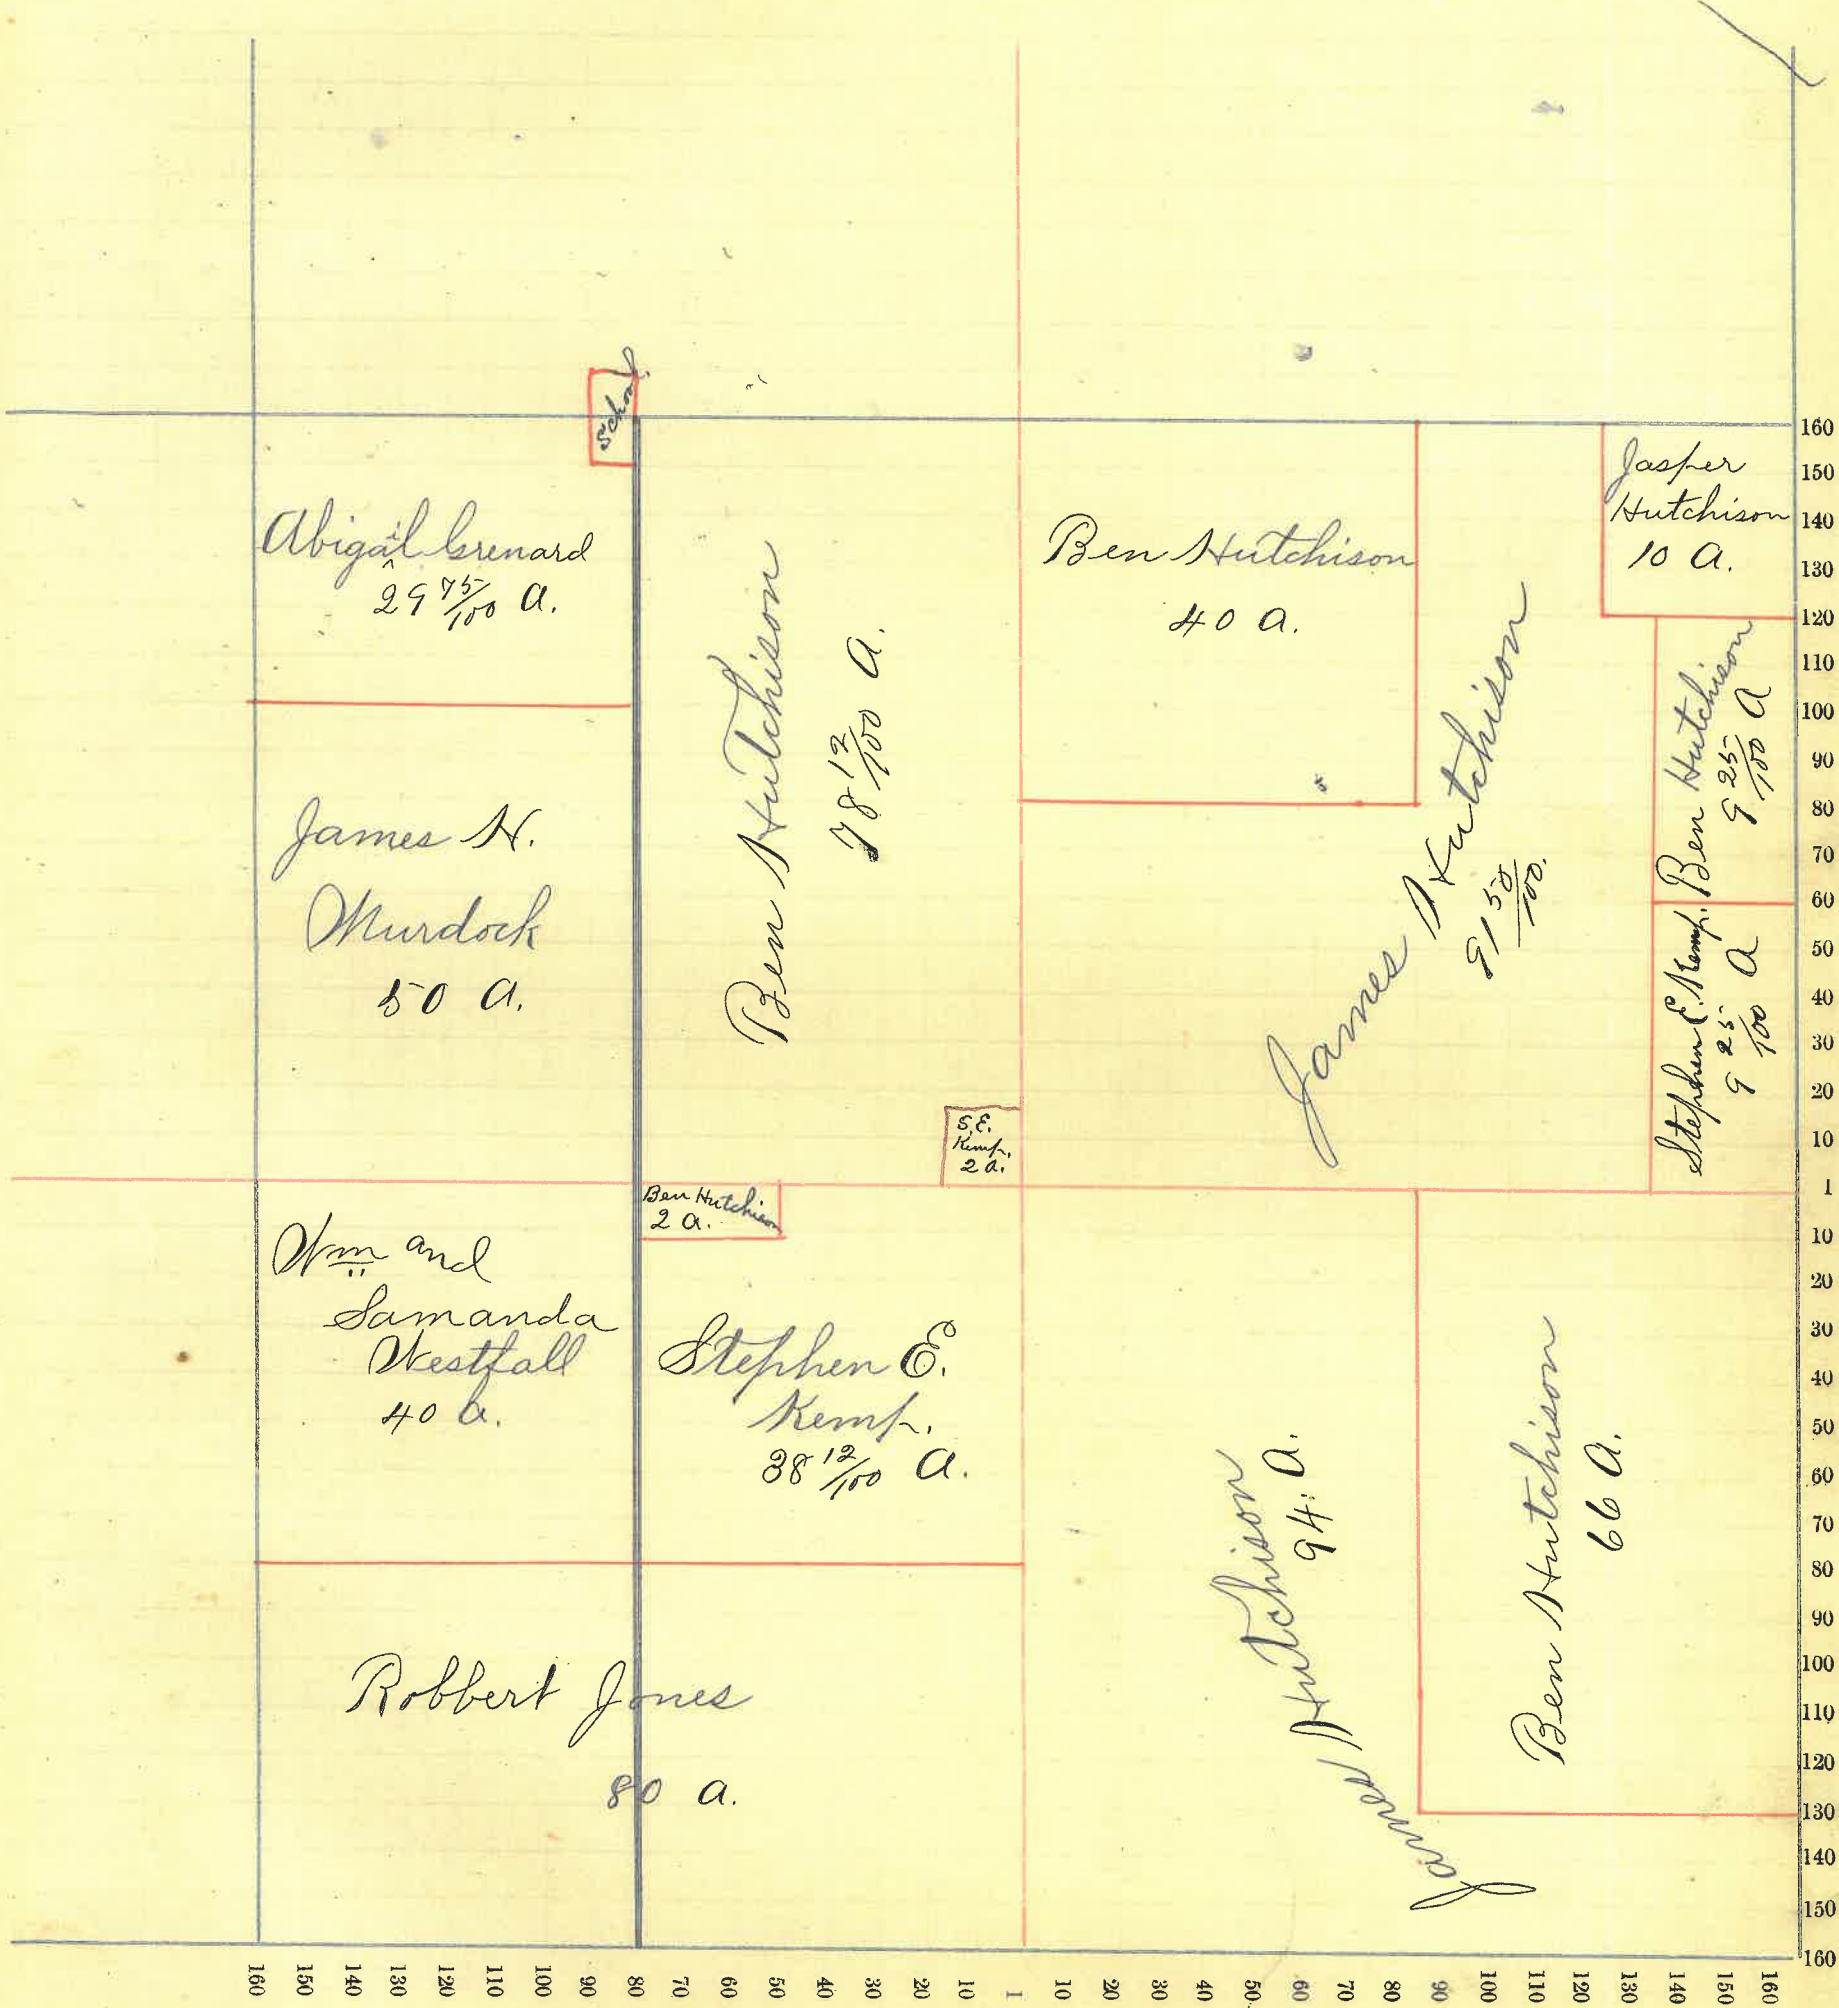 School
Abigail Grenard
29 75/100 A.
James H.
Murdock
50 A.
Ben Hutchison
78 12/100 A.
S.E.
Kemp.
2 A.
Ben Hutchison
40 A.
James Hutchison
91 50/100.
Jasper
Hutchison
10 A.
Ben Hutchison
9 25/100 A
Stephen E. Kemp.
9 25/100 A
Wm and
Samanda
Westfall
40 A.
Ben Hutchison
2 A.
Stephen E.
Kemp.
38 12/100 A.
Robbert Jones
80 A.
James Hutchison
94. A.
Ben Hutchison
66 A.
160
150
140
130
120
110
100
90
80
70
60
50
40
30
20
10
1
10
20
30
40
50
60
70
80
90
100
110
120
130
140
150
160
160 150 140 130 120 110 100 90 80 70 60 50 40 30 20 10 1 10 20 30 40 50 60 70 80 90 100 110 120 130 140 150 160